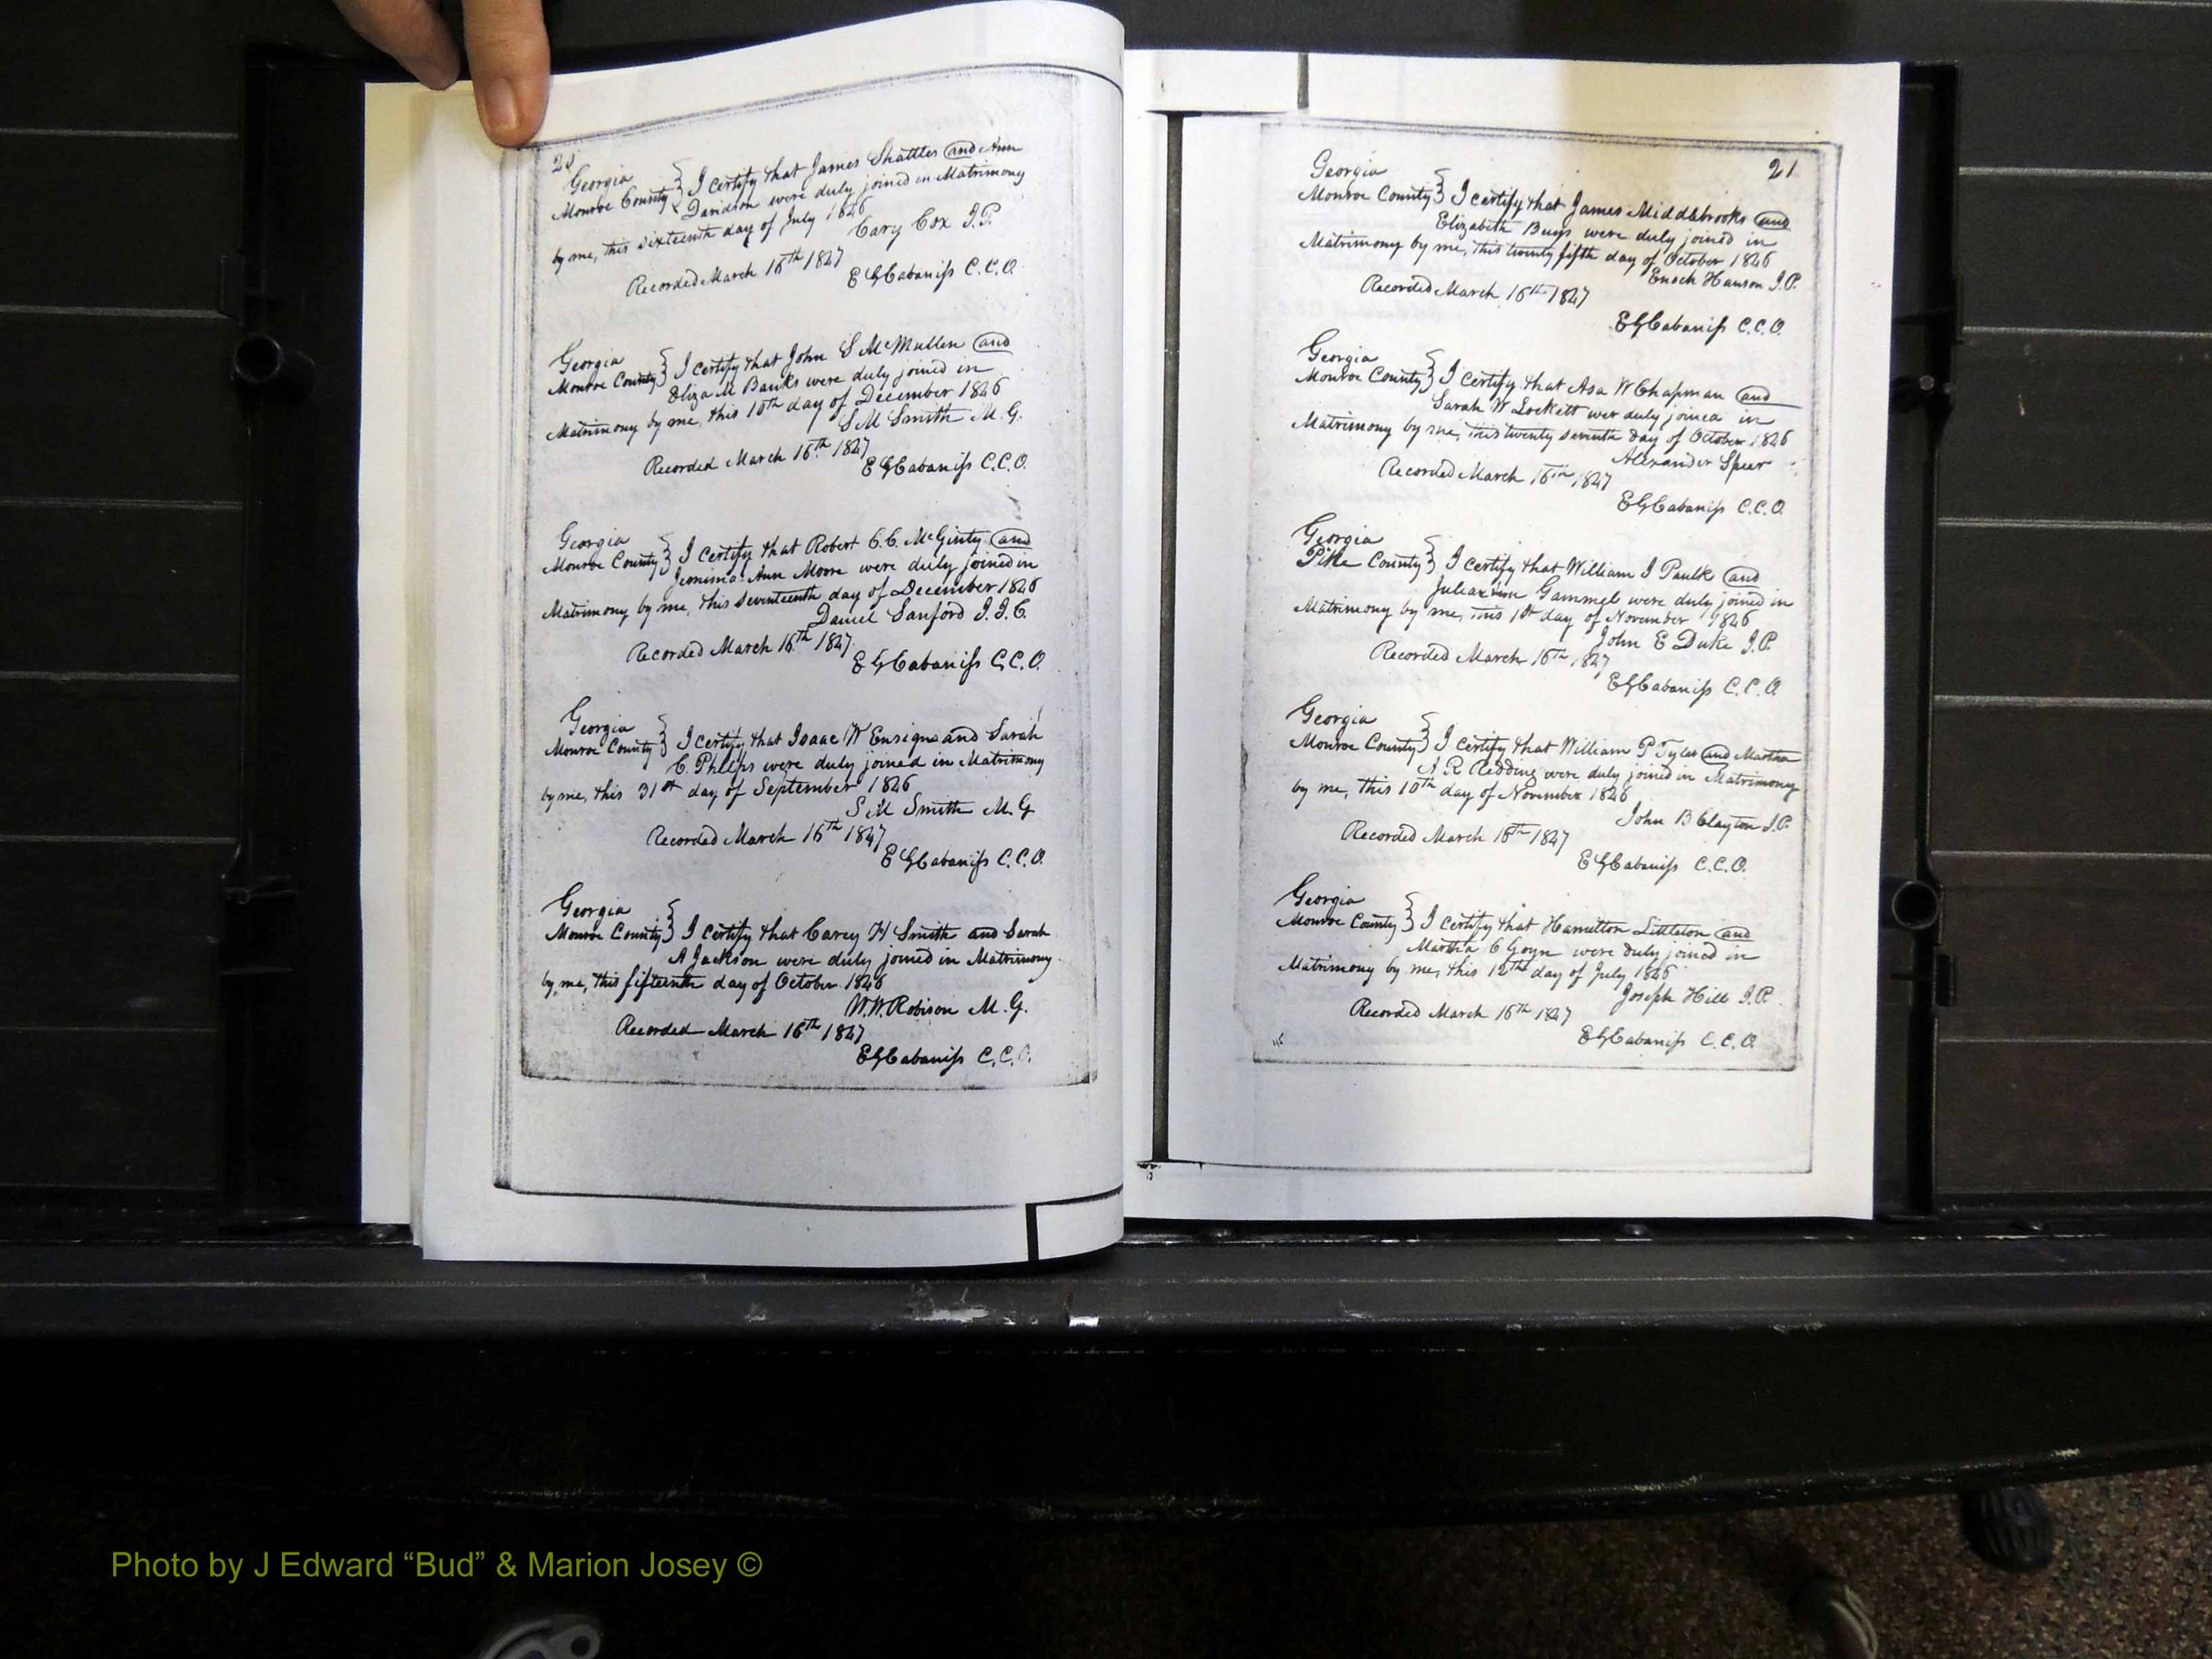 20
Georgia
Monroe County } I certify that James Shattles and Ann
Davidson were duly joined in Matrimony
by me, this sixteenth day of July 1846
Cary Cox J.P.
Recorded March 16th 1847
E G Cabaniss C.C.O.
Georgia
Monroe County } I certify that John S McMullen and
Eliza M Banks were duly joined in
Matrimony by me, this 10th day of December 1846
S M Smith M.G.
Recorded March 16th 1847
E G Cabaniss C.C.O.
Georgia
Monroe County } I certify that Robert C.C. McGinty and
Jemima Ann Moore were duly joined in
Matrimony by me, this seventeenth day of December 1846
Daniel Sanford J.I.C.
Recorded March 16th 1847
E G Cabaniss C.C.O.
Georgia
Monroe County } I certify that Isaac W Ensign and Sarah
C. Phelps were duly joined in Matrimony
by me, this 31st day of September 1846
S M Smith M.G
Recorded March 16th 1847
E G Cabaniss C.C.O.
Georgia
Monroe County } I certify that Carey H Smith and Sarah
A Jackson were duly joined in Matrimony
by me, this fifteenth day of October 1846
W.W. Robison M.G.
Recorded March 16th 1847
E G Cabaniss C.C.O.
21
Georgia
Monroe County } I certify that James Middlebrooks and
Elizabeth were duly joined in
Matrimony by me, this twenty fifth day of October 1846
Enoch Hanson J.P.
Recorded March 16th 1847
E G Cabaniss C.C.O.
Georgia
Monroe County } I certify that Asa W Chapman and
Sarah W Lockett wer duly joined in
Matrimony by me, this twenty seventh day of October 1846
Alexander Speer
Recorded March 16th 1847
E G Cabaniss C.C.O.
Georgia
Pike County } I certify that William I Paulk and
Gammel were duly joined in
Matrimony by me, this 1st day of November 1846
John E Duke J.P.
Recorded March 16th 1847
E G Cabaniss C.C.O.
Georgia
Monroe County } I certify that William P Tyler and Martha
A R Redding were duly joined in Matrimony
by me, this 10th day of November 1846
John B Clayton J.P.
Recorded March 16th 1847
E G Cabaniss C.C.O.
Georgia
Monroe County } I certify that Hamilton Littleton and
Martha C Goyn were duly joined in
Matrimony by me, this 12th day of July 1846
Joseph Hill J.P.
Recorded March 16th 1847
E G Cabaniss C.C.O.
Photo by J Edward “Bud” & Marion Josey ©